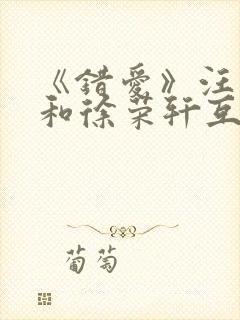 《错爱》汪
和徐荣轩互
葡萄